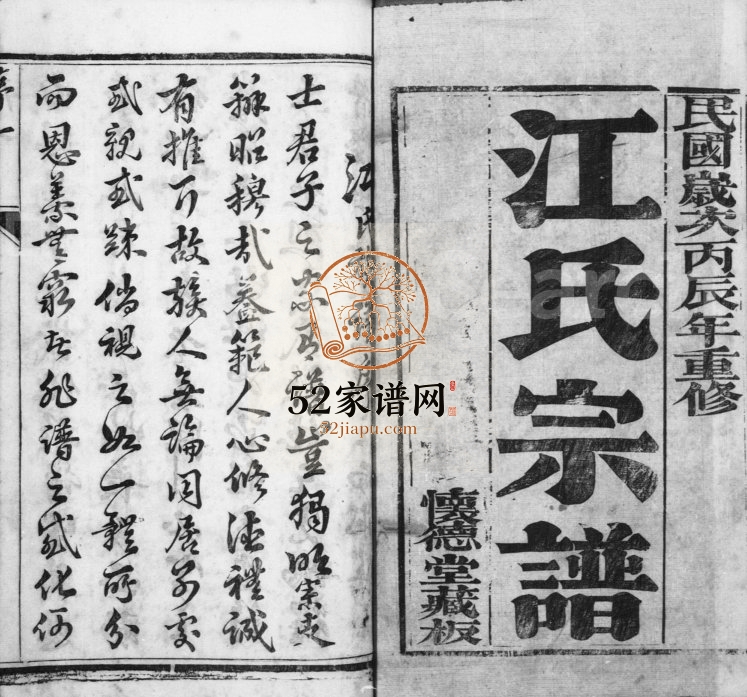 民國歲次丙辰年重修
江氏宗譜
懷德堂藏板
江氏
士君子之 豈獨明 
籍昭穆哉蓋範人心修德禮誠
有推行故族人無論同居別處
或親或踈倘視之如一體所分
而恩義無窮者非譜之感化何
序一
52家谱网
52jiapu.com